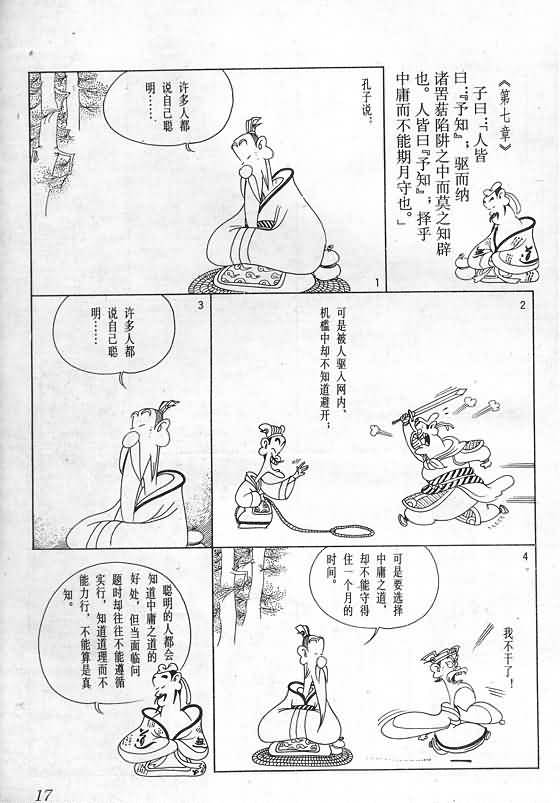 《第七章》
子曰：「人皆
曰：『予知』；驱而纳
诸罟菇陷阱之中而莫之知辟
也。人皆曰『予知』；择乎
中庸而不能期月守也。」
孔子说：
许多人都
说自己聪
明……
1
2
可是被人驱入网内、
机槛中却不知道避开；
3
许多人都
说自己聪
明……
4
可是要选择
中庸之道，
却不能守得
住一个月的
时间。
我不干了！
聪明的人都会
知道中庸之道的
好处，但当面临问
题时却往往不能遵循
实行，知道道理而不
能力行，不能算是真
知。
道
道
17